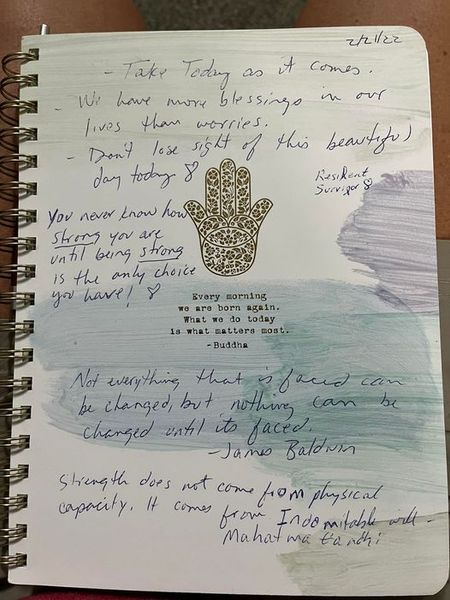 2/21/22
- Take Today as it comes.
- We have more blessings in our
lives than worries.
- Don't lose sight of this beautiful
day today
Resilient
Survivor
You never know how
strong you are
until being strong
is the only choice
you have!
Every morning
we are born again.
What we do today
is what matters most.
-Buddha
Not everything that is faced can
be changed, but nothing can be
changed until its faced.
-James Baldwin
Strength does not come from physical
capacity. It comes
from Indomitable will -
Mahatma Gandhi